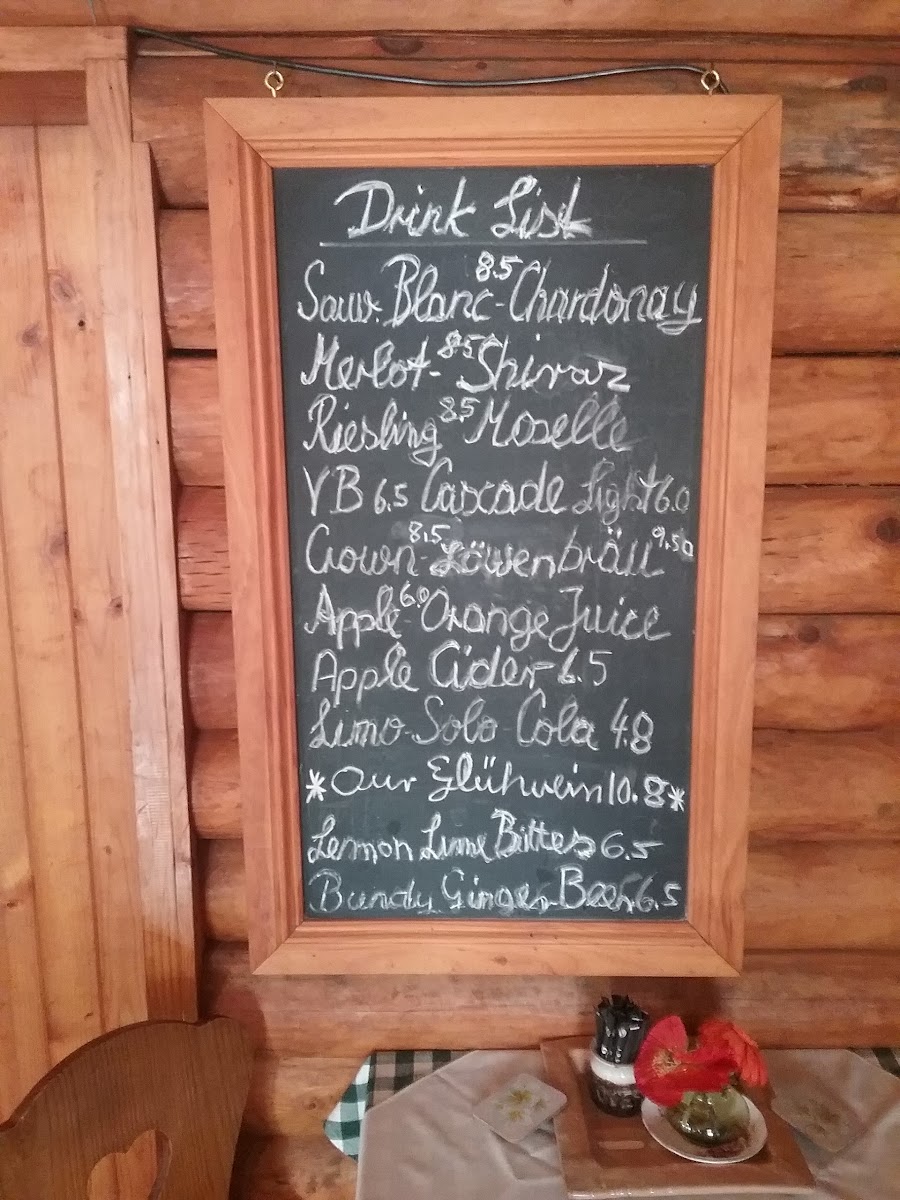 Drink List
Sauv. Blanc 8.5 - Chardonay
Merlot - 8.5 Shiraz
Riesling 8.5 Moselle
VB 6.5 Cascade Light 6.0
Crown 8.5 - Löwenbräu 9.50
Apple 6.0 - Orange Juice
Apple Cider 6.5
Limo - Solo - Cola 4.8
* Our Glühwein 10.8 *
Lemon Lime Bitters 6.5
Bundy Ginger Beer 6.5